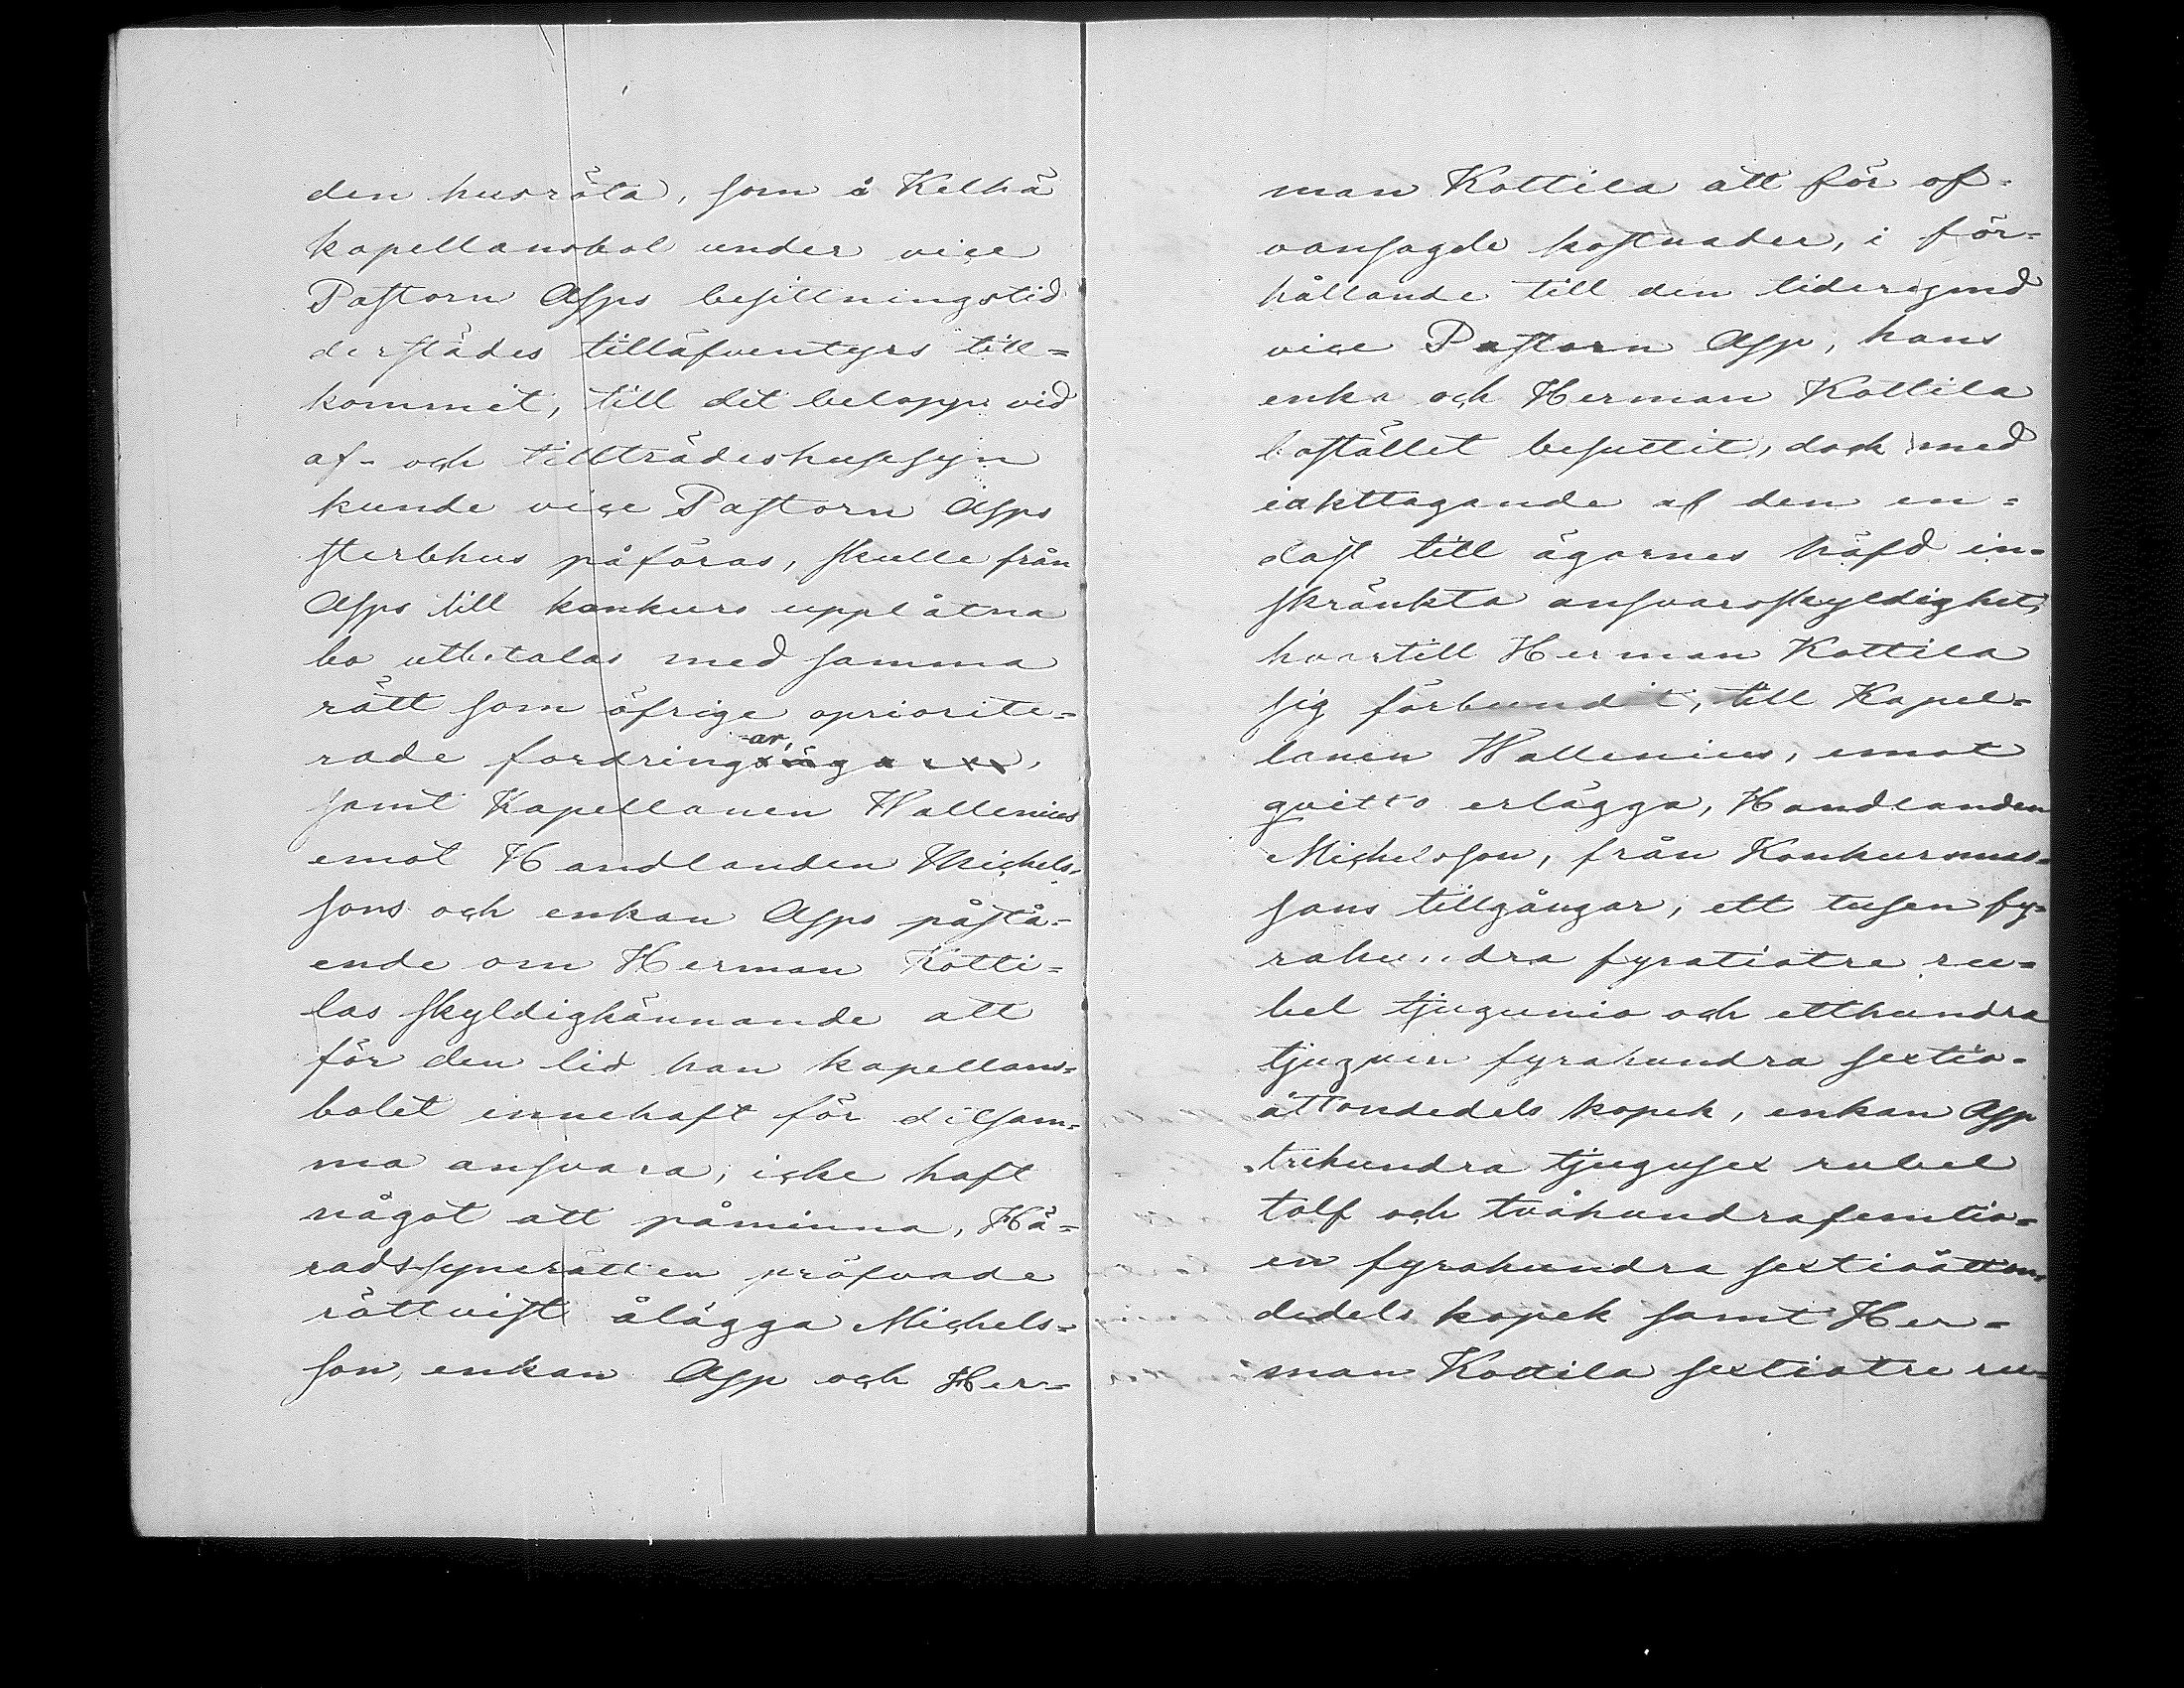 den husröta, som å Kelhä
kapellansbol under vice
Pastorn Asps beställningstid
derstädes tilläfventyrs till=
kommit, till det belopp vid
af- och tillträdeshusesyn
kunde vice Pastorn Asps
sterbhus påföras, skulle från
Asps till konkurs upplåtna
bo utbetalas med samma
rätt som öfrige opriorite=
rade fordringar,
samt Kapellanen Wallenius
emot Handlanden Michels-
sons och enkan Asps påstå-
ende om Herman Kotti=
las skyldigkännande att
för den tid han kapellans=
bolet innehaft för detsam=
ma ansvara, icke haft
något att påminna, Hä=
radssynerätten pröfvade
rättvist ålägga Michels=
son, enkan Asp och Her=
man Kottila att för of=
vansagde kostnader, i för=
hållande till den tiderymd
vice Pastorn Asp, hans
enka och Herman Kottila
bostället besuttit, dock med
iakttagande af den en=
dast till ägornes häfd in=
skränkta ansvarsskyldighet,
hvartill Herman Kottila
sig förbundit, till Kapel=
lanen Wallenius, emot
qvitto erlägga, Handlanden
Michelsson, från Konkursmas=
sans tillgångar, ett tusen fy=
rahundra fyratiotre ru=
bel tjugunio och etthundra
tjuguen fyrahundra sextio=
åttondedels kopek, enkan Asp
trehundra tjugusex rubel
tolf och tvåhundrafemtio=
en fyrahundra sextioåtton=
dedels kopek samt Her=
man Kottila sextiotre ru=